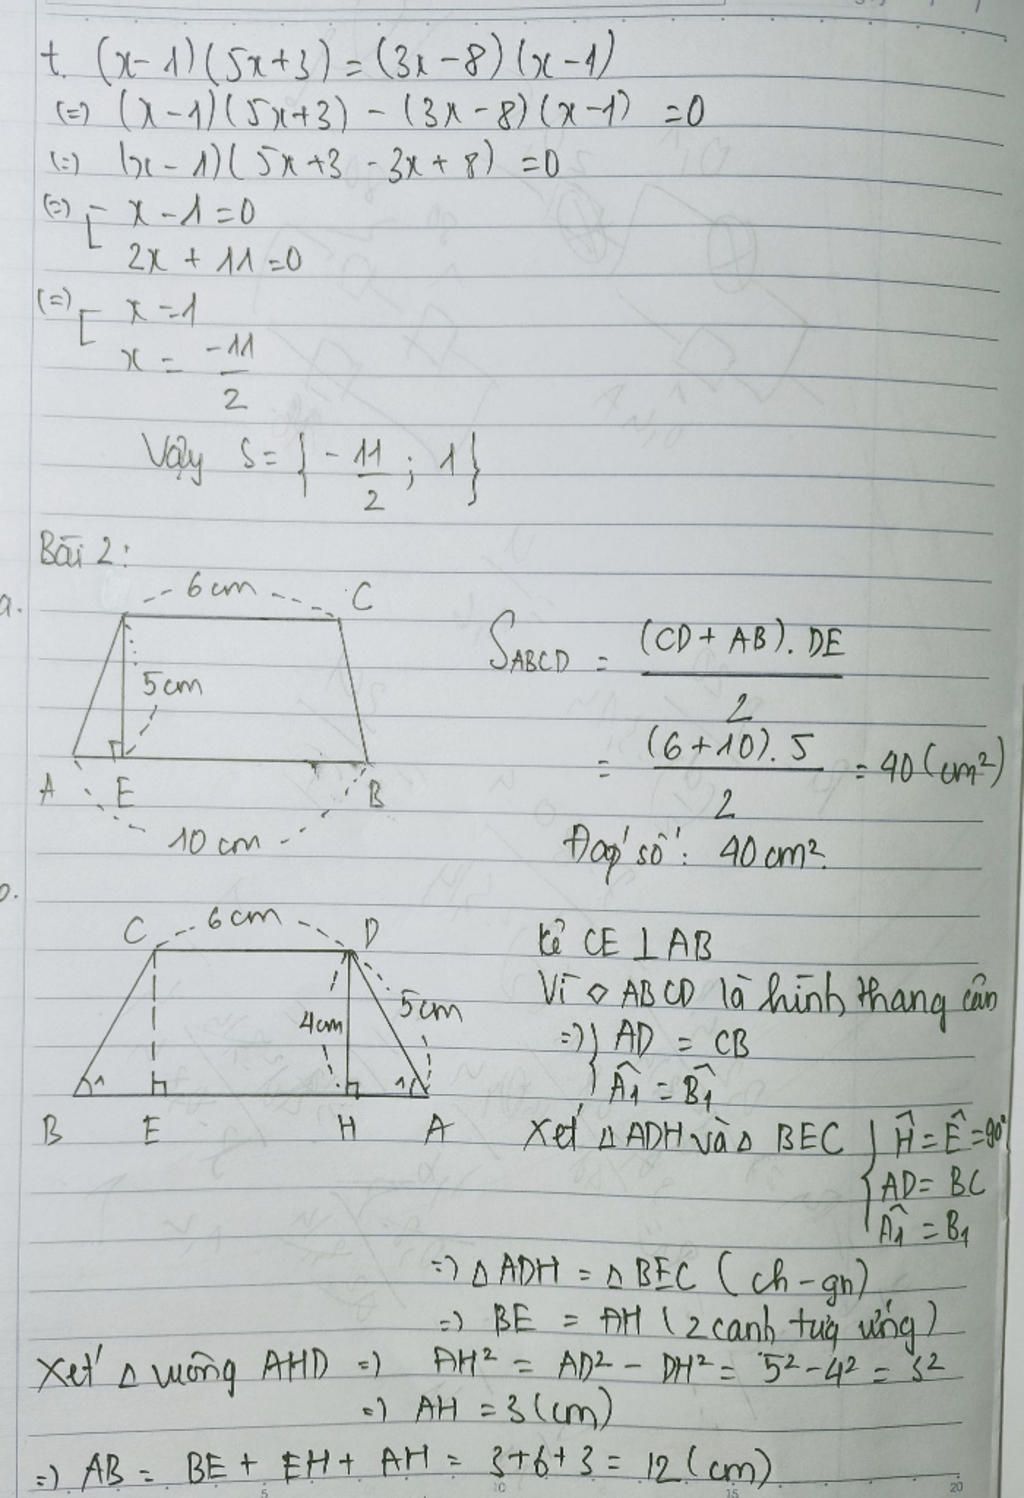 t. (x-1)(5x+3) = (3x-8)(x-1)
(=) (x-1)(5x+3) - (3x-8)(x-1) = 0
(=) (x-1)(5x+3-3x+8) = 0
(=) [ x-1=0
2x+11=0
(=) [ x=1
x = -11/2
Vậy S = { -11/2 ; 1 }
Bài 2:
a.
6cm C
5cm
A E B
10 cm
S ABCD = (CD + AB). DE / 2
= (6+10). 5 / 2 = 40 (cm²)
Đáp số: 40 cm².
b.
C 6cm D
4cm 5cm
1 1
B E H A
kẻ CE ⊥ AB
Vì ◇ ABCD là hình thang cân
=> { AD = CB
Â1 = B̂1
Xét Δ ADH và Δ BEC { Ĥ = Ê = 90°
AD = BC
Â1 = B1
=> Δ ADH = Δ BEC (ch-gn)
=> BE = AH (2 cạnh tuq ứng)
Xét Δ vuông AHD => AH² = AD² - DH² = 5² - 4² = 3²
=> AH = 3 (cm)
=> AB = BE + EH + AH = 3+6+3 = 12 (cm)
5 10 15 20